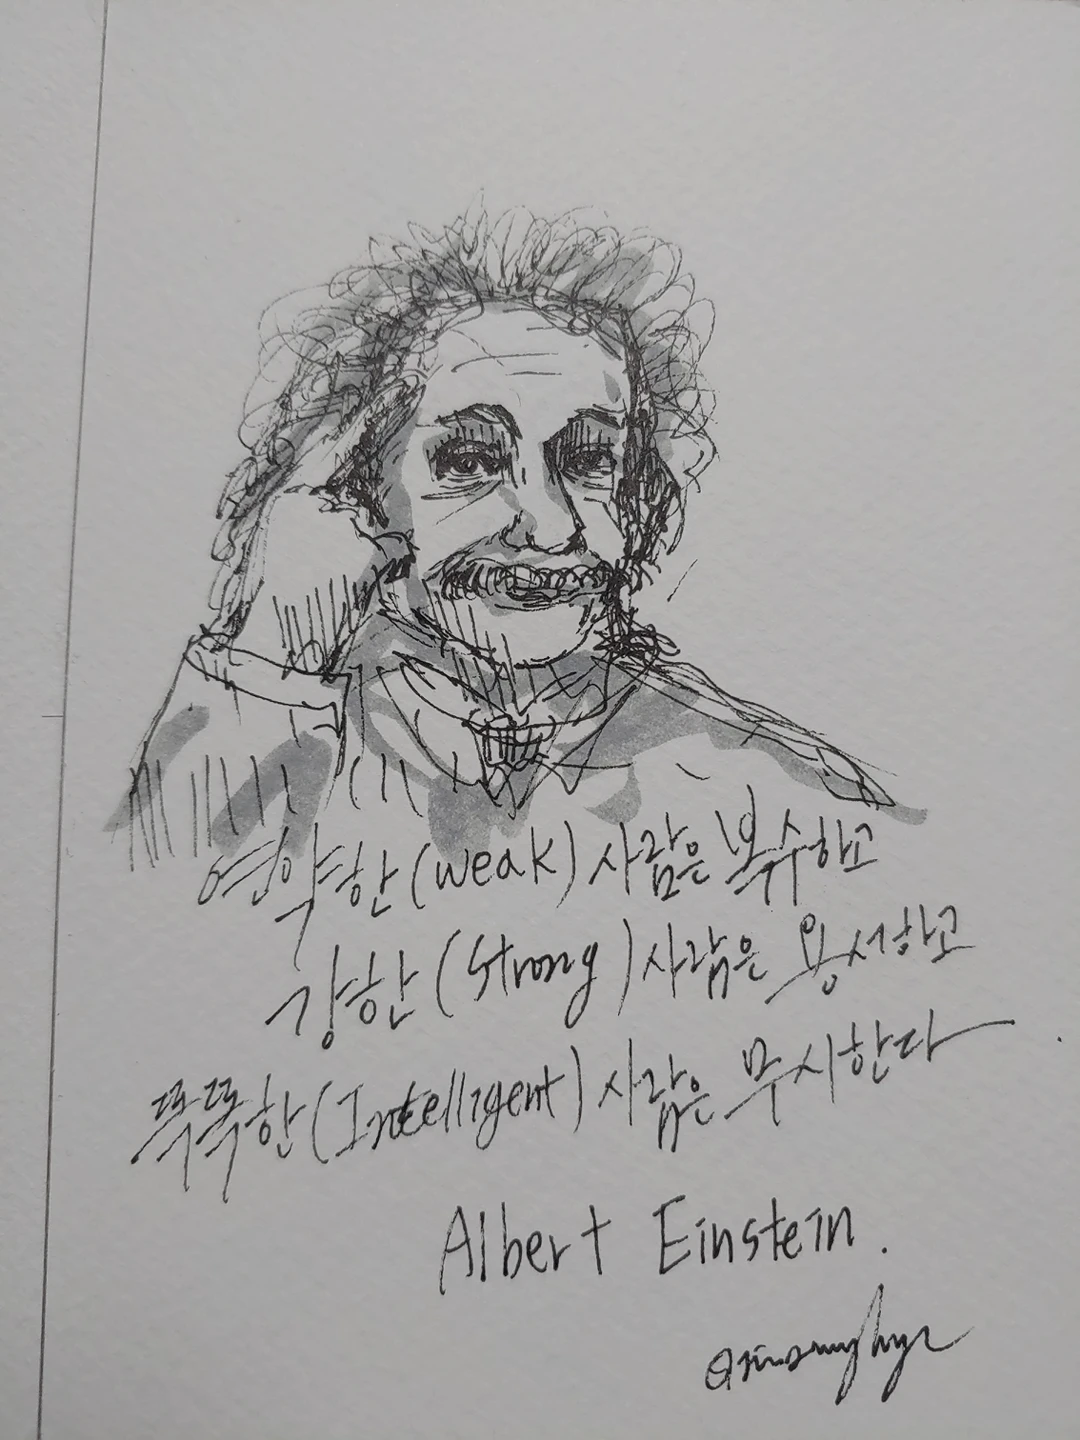 연약한(weak)사람은 복수하고
강한(Strong)사람은 용서하고
똑똑한(Intelligent)사람은 무시한다
Albert Einstein.